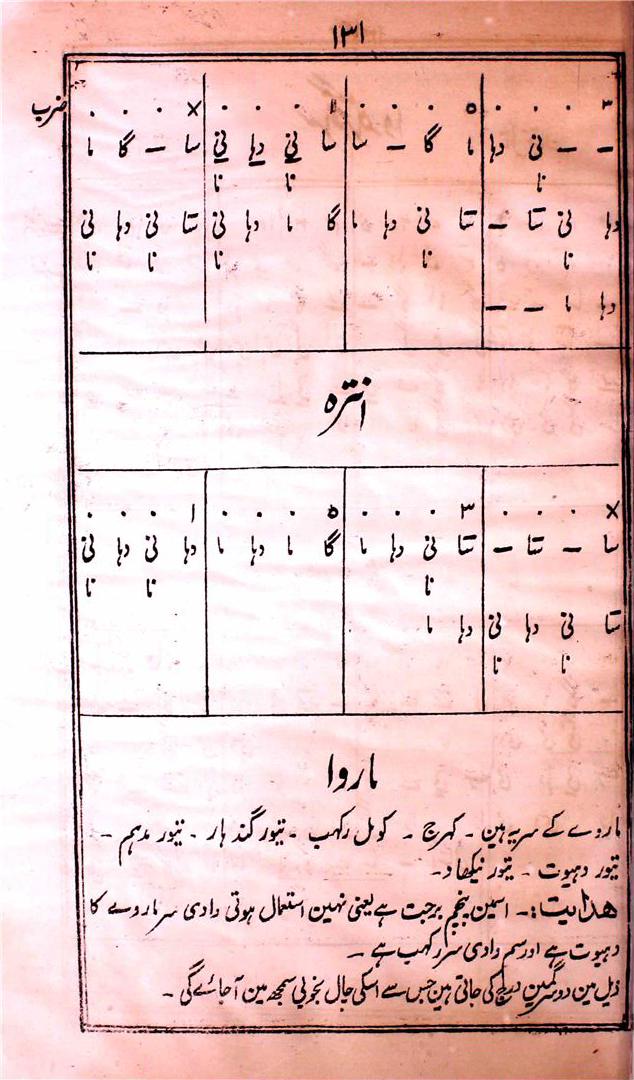 ۱۳۱
۳ ۰ ۰ ۰ ۵ ۰ ۰ ۰ ۱ ۰ ۰ ۰ × ۰ ۰ ۰ ضرب
– – نی دہا ما گا – سا سا نی دہا نی سا – گا ما
نا نا نا
دہا نی ستا – ستا نی دہا ما گا ما دہا نی ستا نی دہا نی
نا نا نا نا نا
دہا ما – –
انترہ
× ۰ ۰ ۰ ۳ ۰ ۰ ۰ ۵ ۰ ۰ ۰ ۱ ۰ ۰ ۰
سا – ستا – ستا نی دہا ما گا ما دہا ما دہا نی دہا نی
نا نا نا
ستا نی دہا نی دہا ما
نا نا
ماروا
ماروے کے سر یہ ہین ۔ کہرج ۔ کومل رکہب ۔ تیور گندہار ۔ تیور مدہم ۔
تیور دہیوت ۔ تیور نیکھاد ۔
ھدایت :۔ اسمین پنچم برجت ہے یعنی نہین استعمال ہوتی وادی سر ماروے کا
دہیوت ہے اور سم وادی سر رکہب ہے ۔
ذیل مین دو سرگمین درج کی جاتی ہین جس سے اسکی چال بخوبی سمجھ مین آ جائے گی ۔